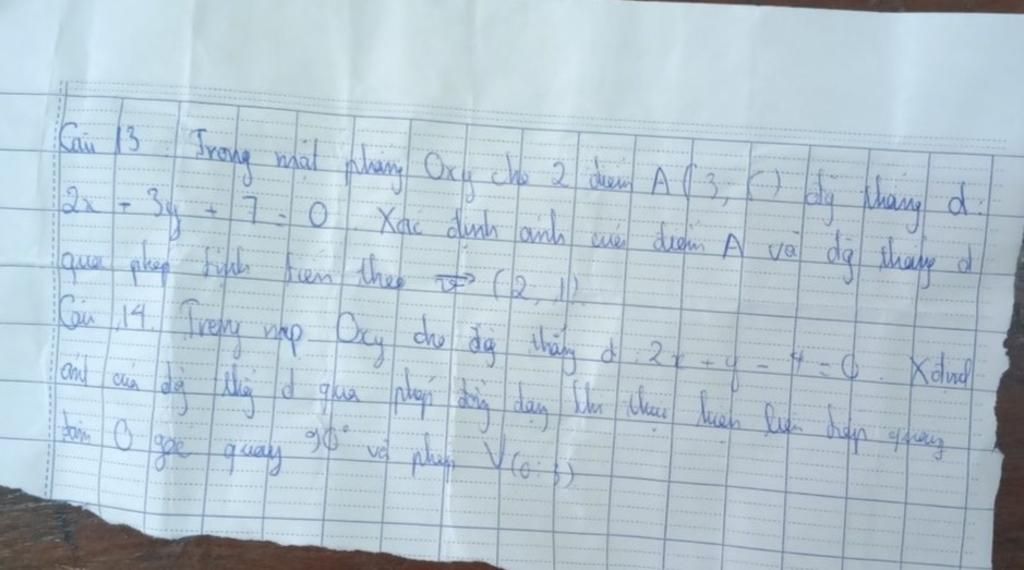 Câu 13. Trong mặt phẳng Oxy cho 2 điểm A(3; đg thẳng d:
2x - 3y + 7 = 0. Xác định ảnh của điểm A và đg thẳng d
qua phép tịnh tiến theo v (2; 1)
Câu 14. Trong mp Oxy cho đg thẳng d: 2x + y - 4 = 0. Xđịnh
ảnh của đg thg d qua phép đồng dạng khi thực hiện liên tiếp quay
tâm O góc quay 90° và phép V(0;3)